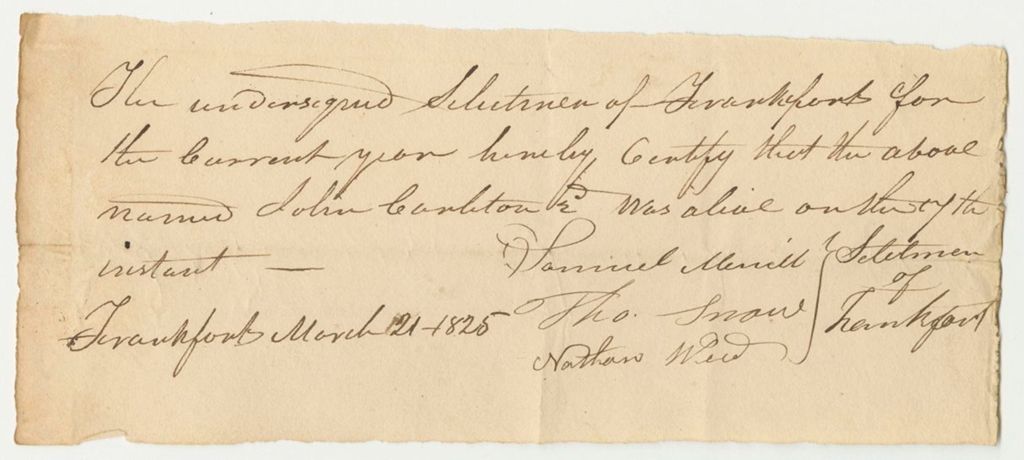 The undersigned Selectmen of Frankfort for
the Current year hereby Certify that the above
named John Carleton 2d Was alive on the 7th
instant —
Samuel Merrill } Selectmen
Tho. Snow of
Frankfort March 21 - 1825
Nathan Weed Frankfort